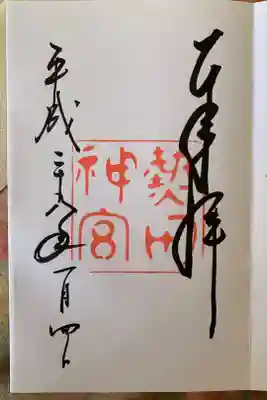 奉拝
熱田神宮
平成二十八年一月四日